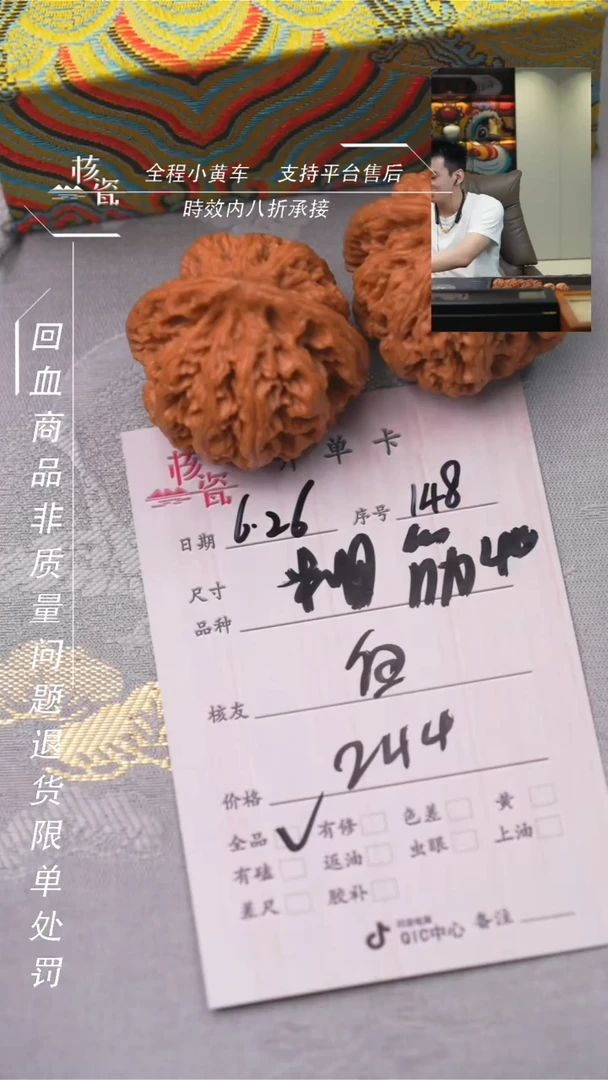 核瓷
全程小黄车 支持平台售后
時效内八折承接
回血商品非质量问题退货限单处罚
核瓷 开单卡
日期 6.26 序号 148
尺寸
品种 筋40
核友
价格 244
全品 ✓ 有修 色差 黄
有磕 返油 虫眼 上油
差尺 胶补
QIC中心 备注